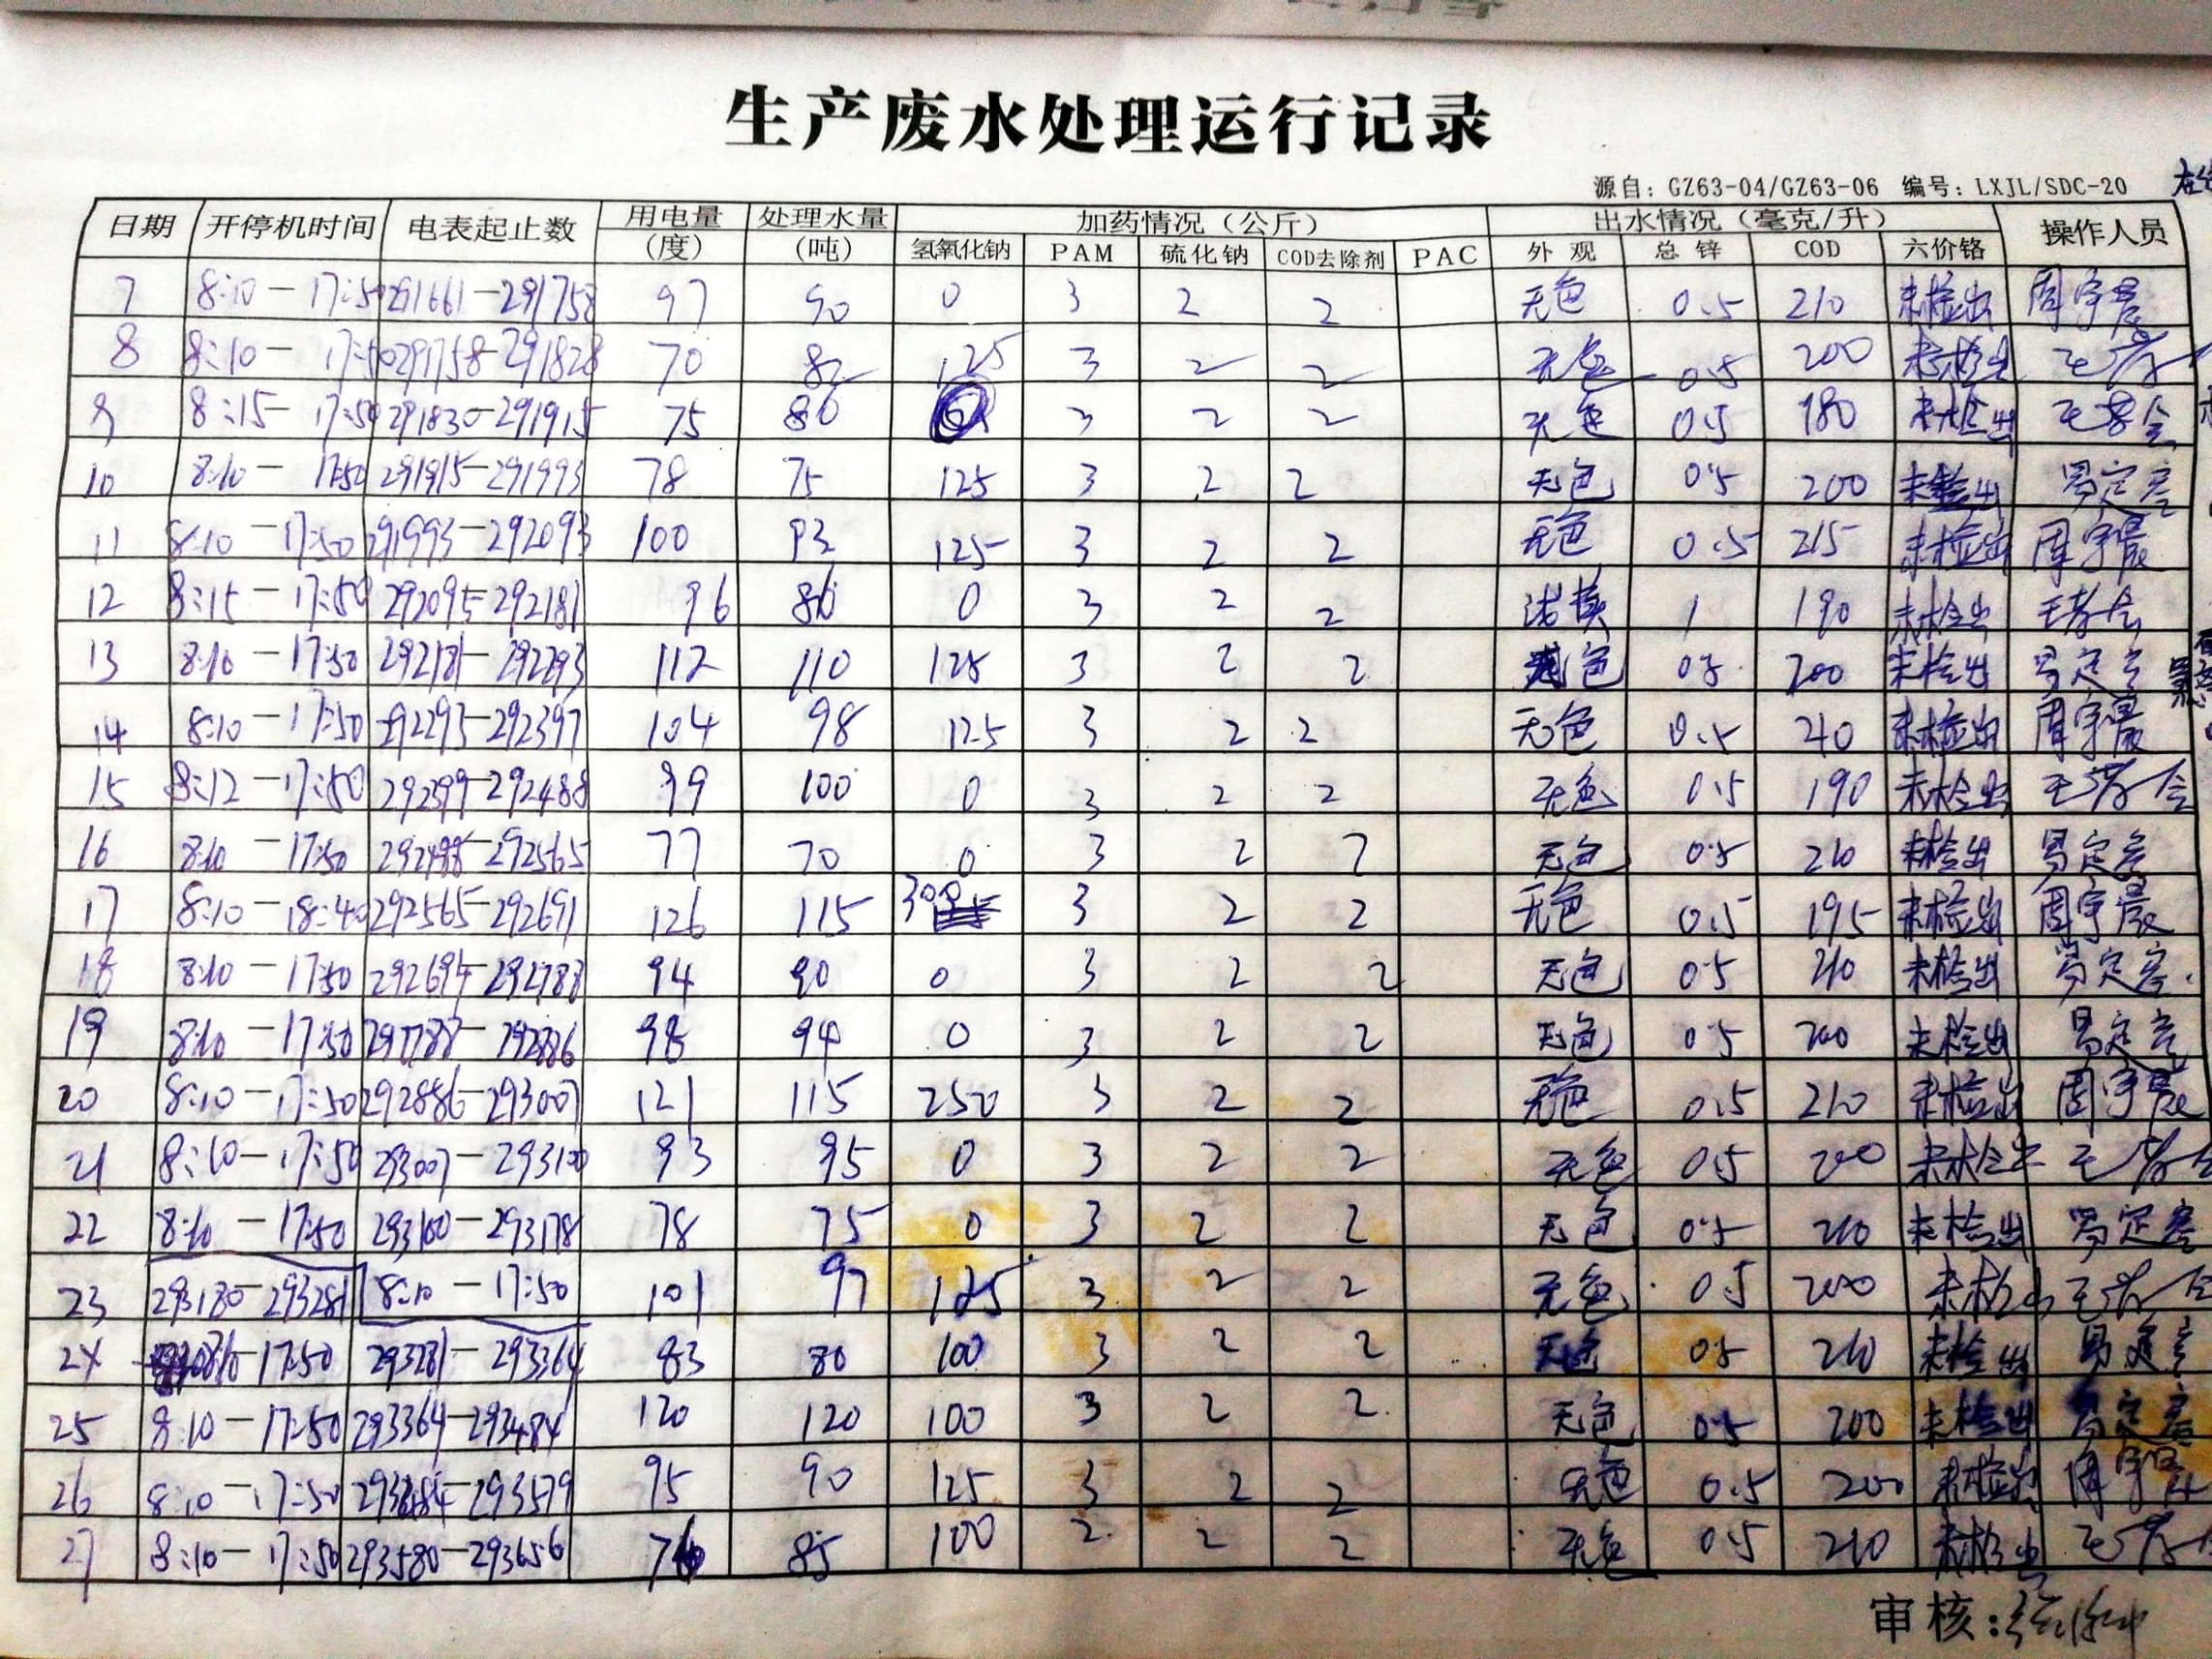 生产废水处理运行记录
源自：GZ63-04/GZ63-06 编号：LXJL/SDC-20
日期 开停机时间 电表起止数 用电量（度） 处理水量（吨） 加药情况（公斤） 出水情况（毫克/升） 操作人员
氢氧化钠 PAM 硫化钠 COD去除剂 PAC 外观 总锌 COD 六价铬
7 8:10－17:50 291661－291758 97 90 0 3 2 2 无色 0.5 210 未检出 周宇晨
8 8:10－17:50 291758-291828 70 82 125 3 2 2 无色 0.5 200 未检出
9 8:15－17:50 291830-291915 75 86 3 2 2 无色 0.5 180 未检出
10 8:10－17:50 291915-291993 78 75 125 3 2 2 无色 0.5 200 未检出
11 8:10－17:50 291993-292093 100 93 125 3 2 2 无色 0.5 215 未检出 周宇晨
12 8:15－17:50 292095-292181 96 86 0 3 2 2 1 190 未检出
13 8:10－17:50 292181-292293 112 110 125 3 2 2 无色 0.5 200 未检出
14 8:10－17:50 292293-292397 104 98 125 3 2 2 无色 0.5 210 未检出 周宇晨
15 8:12－17:50 292399-292488 99 100 0 3 2 2 无色 0.5 190 未检出
16 8:10－17:50 292488-292565 77 70 0 3 2 2 无色 0.5 210 未检出
17 8:10－18:40 292565-292691 126 115 3 2 2 无色 0.5 195 未检出 周宇晨
18 8:10－17:50 292694-292788 94 90 0 3 2 2 无色 0.5 210 未检出
19 8:10－17:50 292788-292886 98 94 0 3 2 2 无色 0.5 200 未检出
20 8:10－17:50 292886-293007 121 115 250 3 2 2 无色 0.5 210 未检出 周宇晨
21 8:10－17:50 293007-293100 93 95 0 3 2 2 无色 0.5 200 未检出
22 8:10－17:50 293100-293178 78 75 0 3 2 2 无色 0.5 210 未检出
23 293180-293281 8:10－17:50 101 97 125 3 2 2 无色 0.5 200 未检出
24 8:10-17:50 293281-293364 83 80 100 3 2 2 无色 0.5 210 未检出
25 8:10－17:50 293364-293484 120 120 100 3 2 2 无色 0.5 200 未检出
26 8:10－17:50 293484-293579 95 90 125 3 2 2 无色 0.5 200 未检出 周宇晨
27 8:10－17:50 293580-293656 76 85 100 2 2 2 无色 0.5 210 未检出
审核：